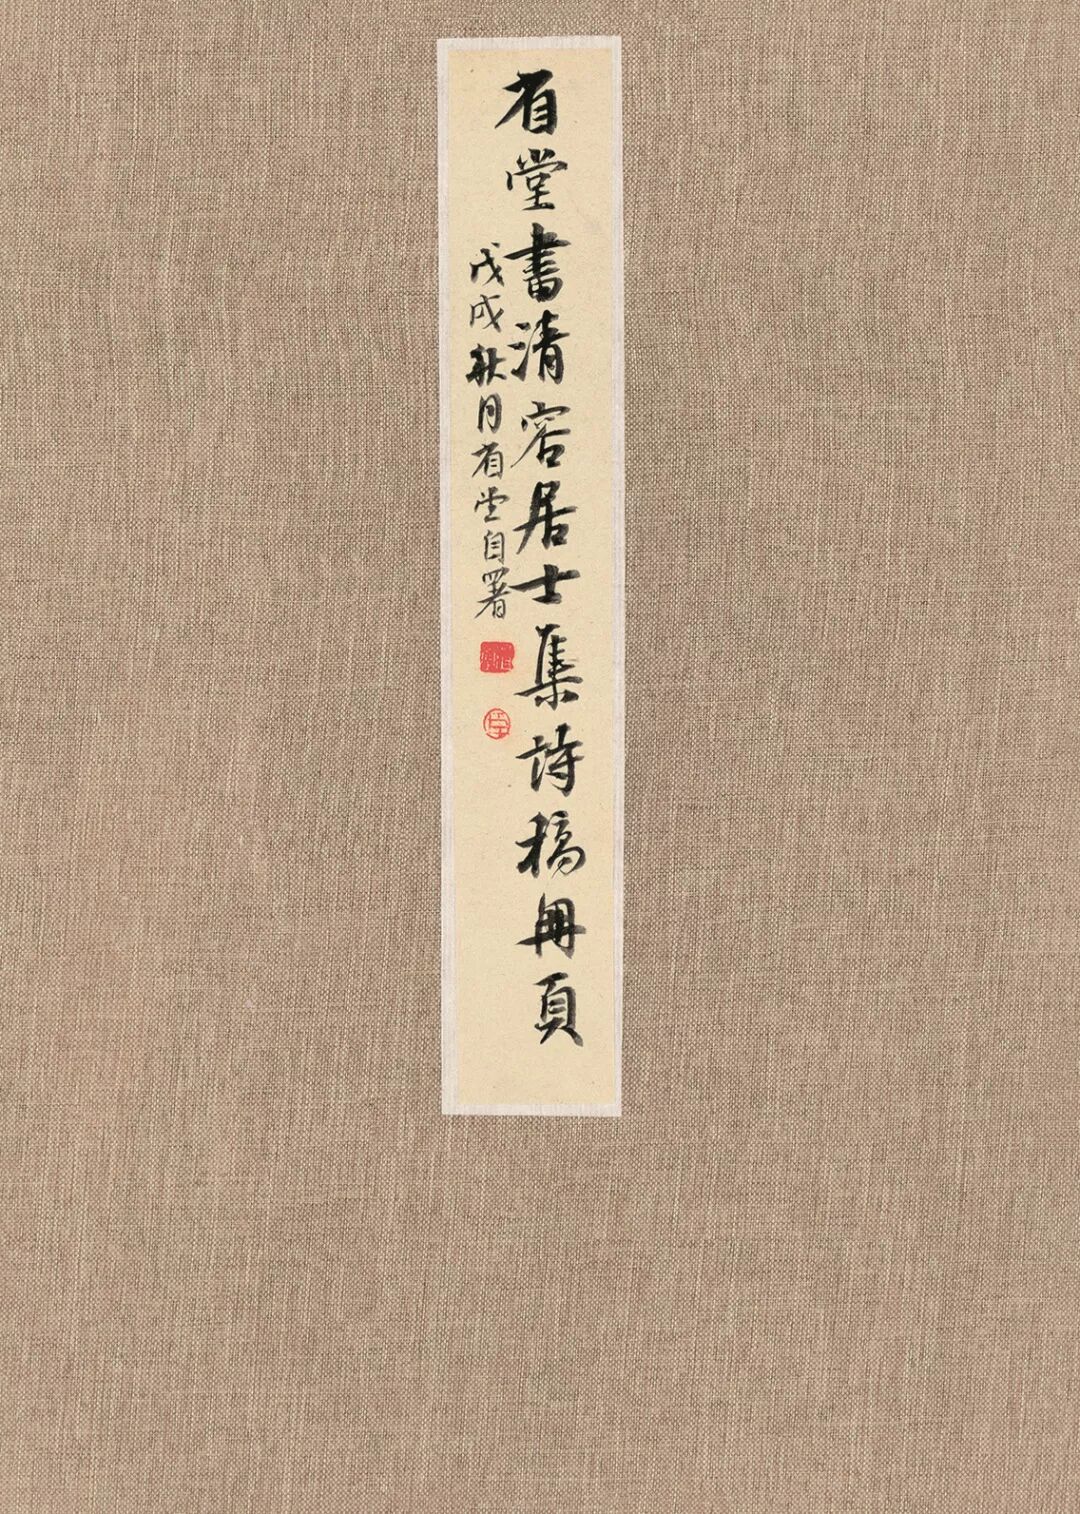 省堂書清容居士集詩稿冊頁
戊戌秋月省堂自署